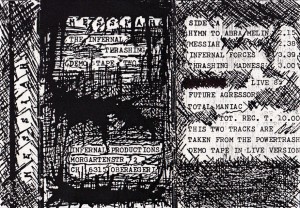 MESSIAH
MESSIAH
THE INFERNAL
THRASHING
DEMO TAPE TWO
INFERNAL PRODUCTIONS
MORGARTENSTR.
CH 6315 OBERAEGERI
SIDE A
HYMN TO ABRAMELIN 2.15
MESSIAH
INFERNAL FORCES
THRASHING MADNESS
LIVE
FUTURE AGRESSOR
TOTAL MANIAC
TOT. REC. T. 10.00
THIS TWO TRACKS ARE
TAKEN FROM THE POWERTRASH
DEMO TAPE IN LIVE VERSION